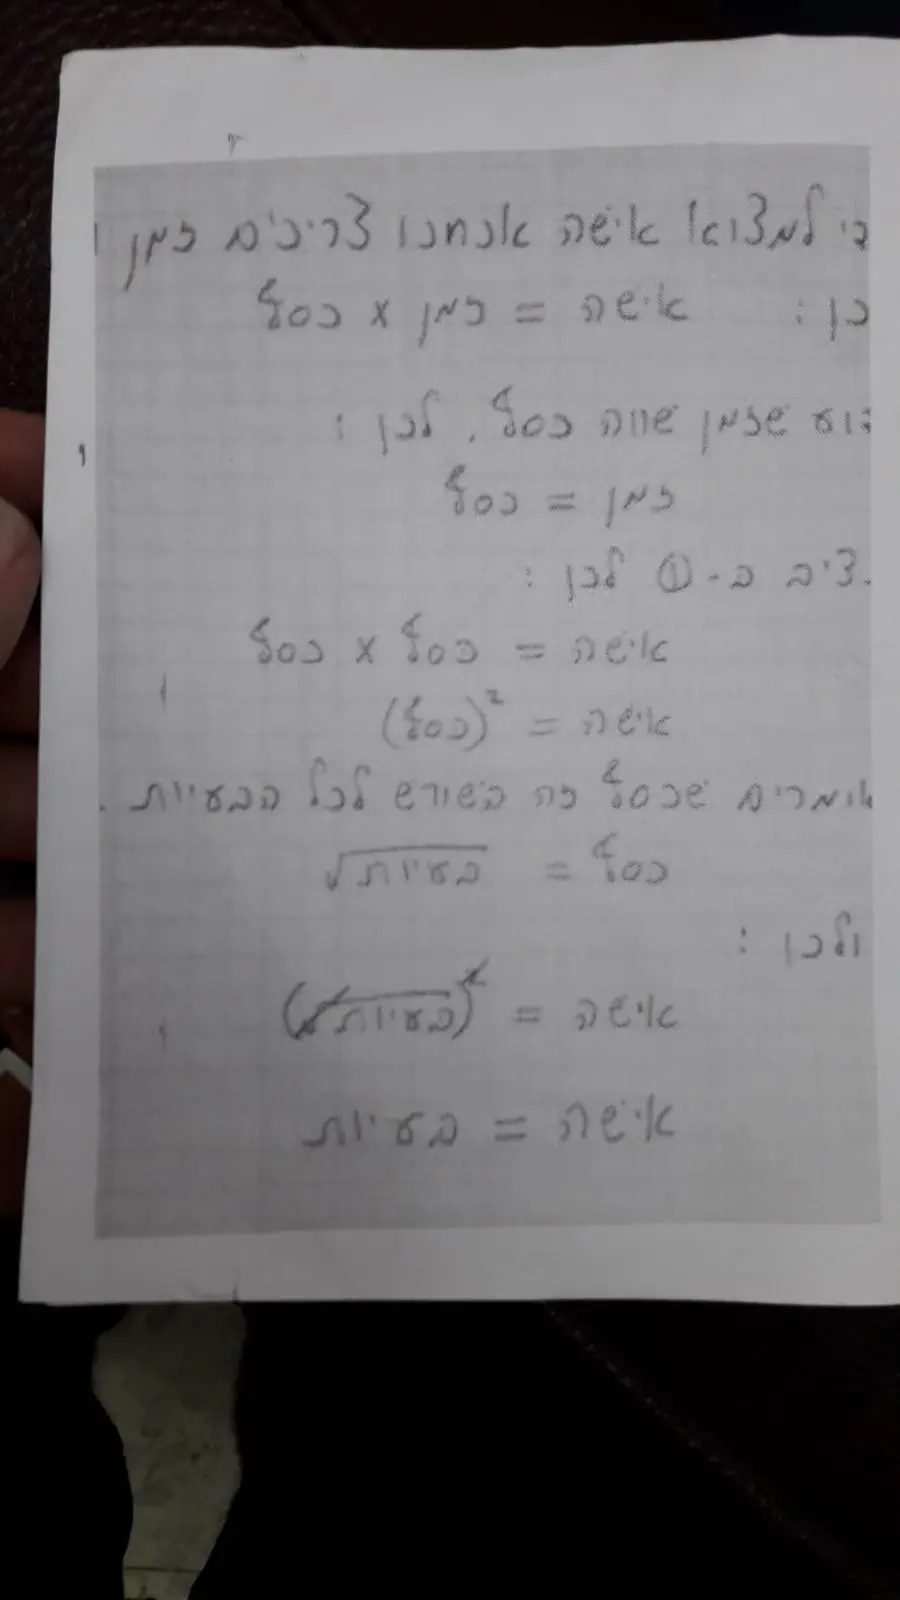 כי למצוא אישה אנחנו צריכים זמן ו
כן: אישה = זמן x כסף
דוע שזמן שווה כסף, לכן:
זמן = כסף
ציב ב-① לכן:
אישה = כסף x כסף
אישה = (כסף)²
אומרים שכסף זה השורש לכל הבעיות.
כסף = √בעיות
ולכן:
אישה = (√בעיות)²
אישה = בעיות